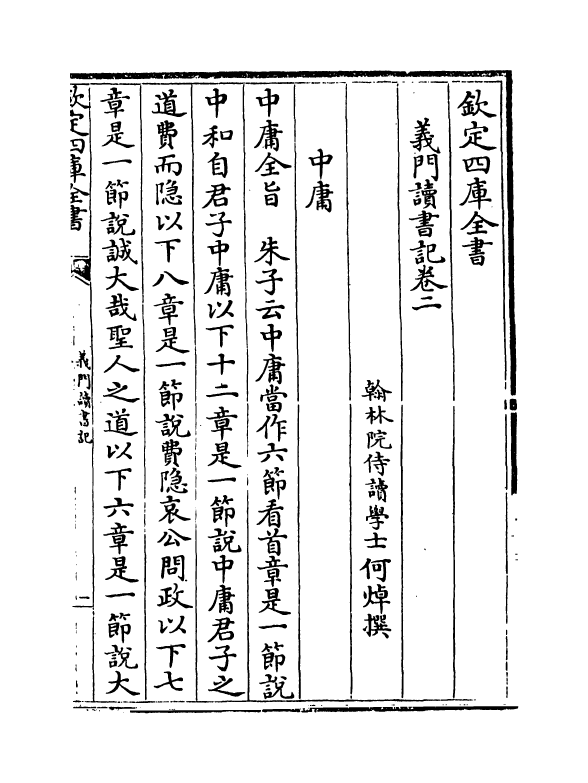 欽定四庫全書
義門讀書記卷二
翰林院侍讀學士何焯撰
中庸
中庸全旨　朱子云中庸當作六節看首章是一節說
中和自君子中庸以下十二章是一節說中庸君子之
道費而隐以下八章是一節說費隐哀公問政以下七
章是一節說誠大哉聖人之道以下六章是一節說大
欽定四庫全書
義門讀書記